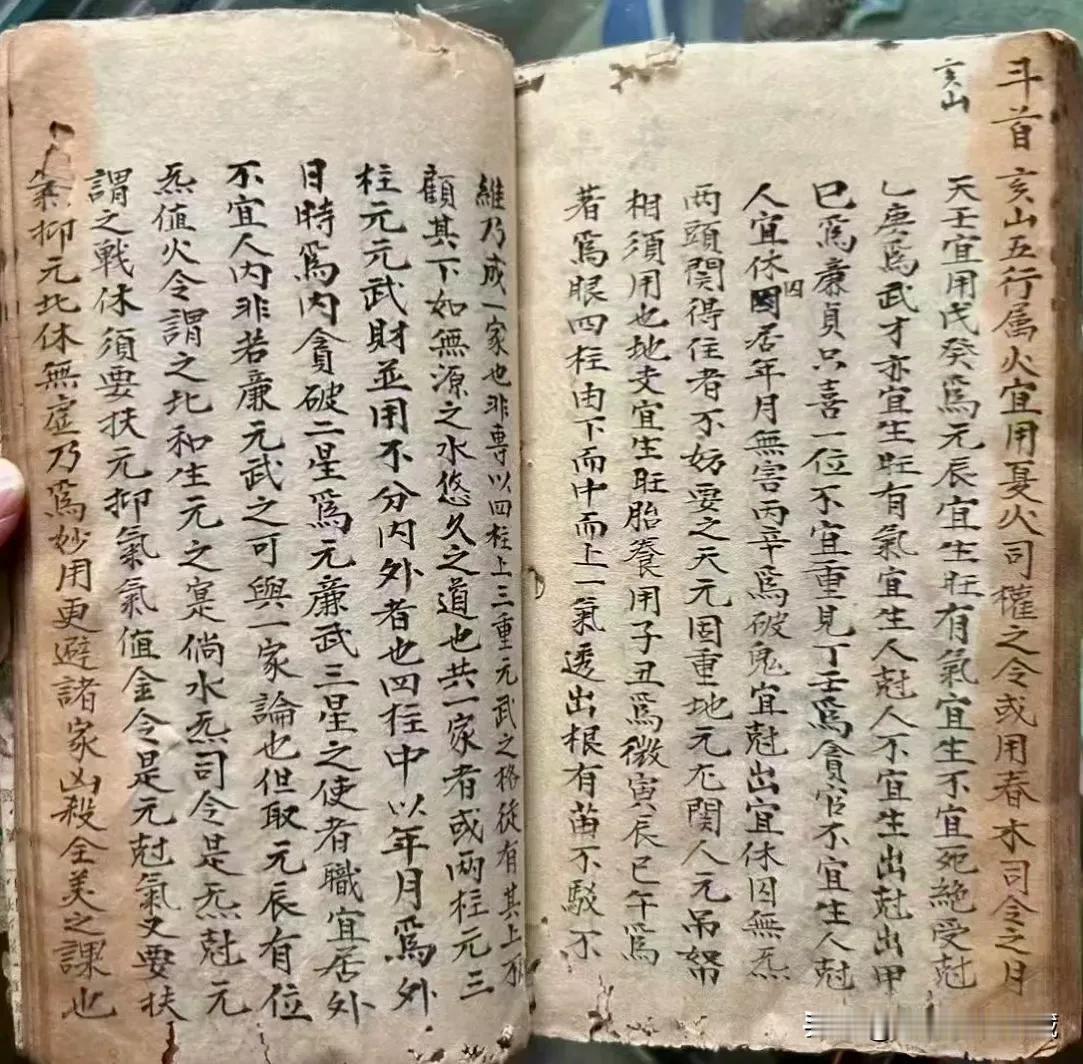 斗首亥山五行属火宜用夏火司權之令或用春木司令之月
亥山
天壬宜用戊癸爲元辰宜生旺有氣宜生不宜死絶受尅
乙庚爲武才亦宜生旺有氣宜生人尅人不宜生出尅出甲
巳爲亷貞只喜一位不宜重見丁壬爲貪官不宜生人尅
人宜休囚居年月無害丙辛爲破鬼宜尅出宜休囚無炁
两頭関得住者不妨要之天元固重地元尤関人元吊帑
相須用也地支宜生旺胎養用子丑爲微寅辰巳午爲
著爲眼四柱由下而中而上一氣透出根有苗不駁不
維乃成一家也非專以四柱上三重元武之格徒有其上不
顧其下如無源之水悠久之道也共一家者或两柱元三
柱元元武財並用不分内外者也四柱中以年月爲外
日時爲内貪破二星爲元亷武三星之使者職宜居外
不宜人内非若亷元武之可與一家論也但取元辰有位
炁値火令謂之比和生元之寔倘水炁司令是炁尅元
謂之戦休須要扶元抑氣氣值金令是元尅氣又要扶
氣抑元比休無虛乃爲妙用更避諸家凶殺全美之課也